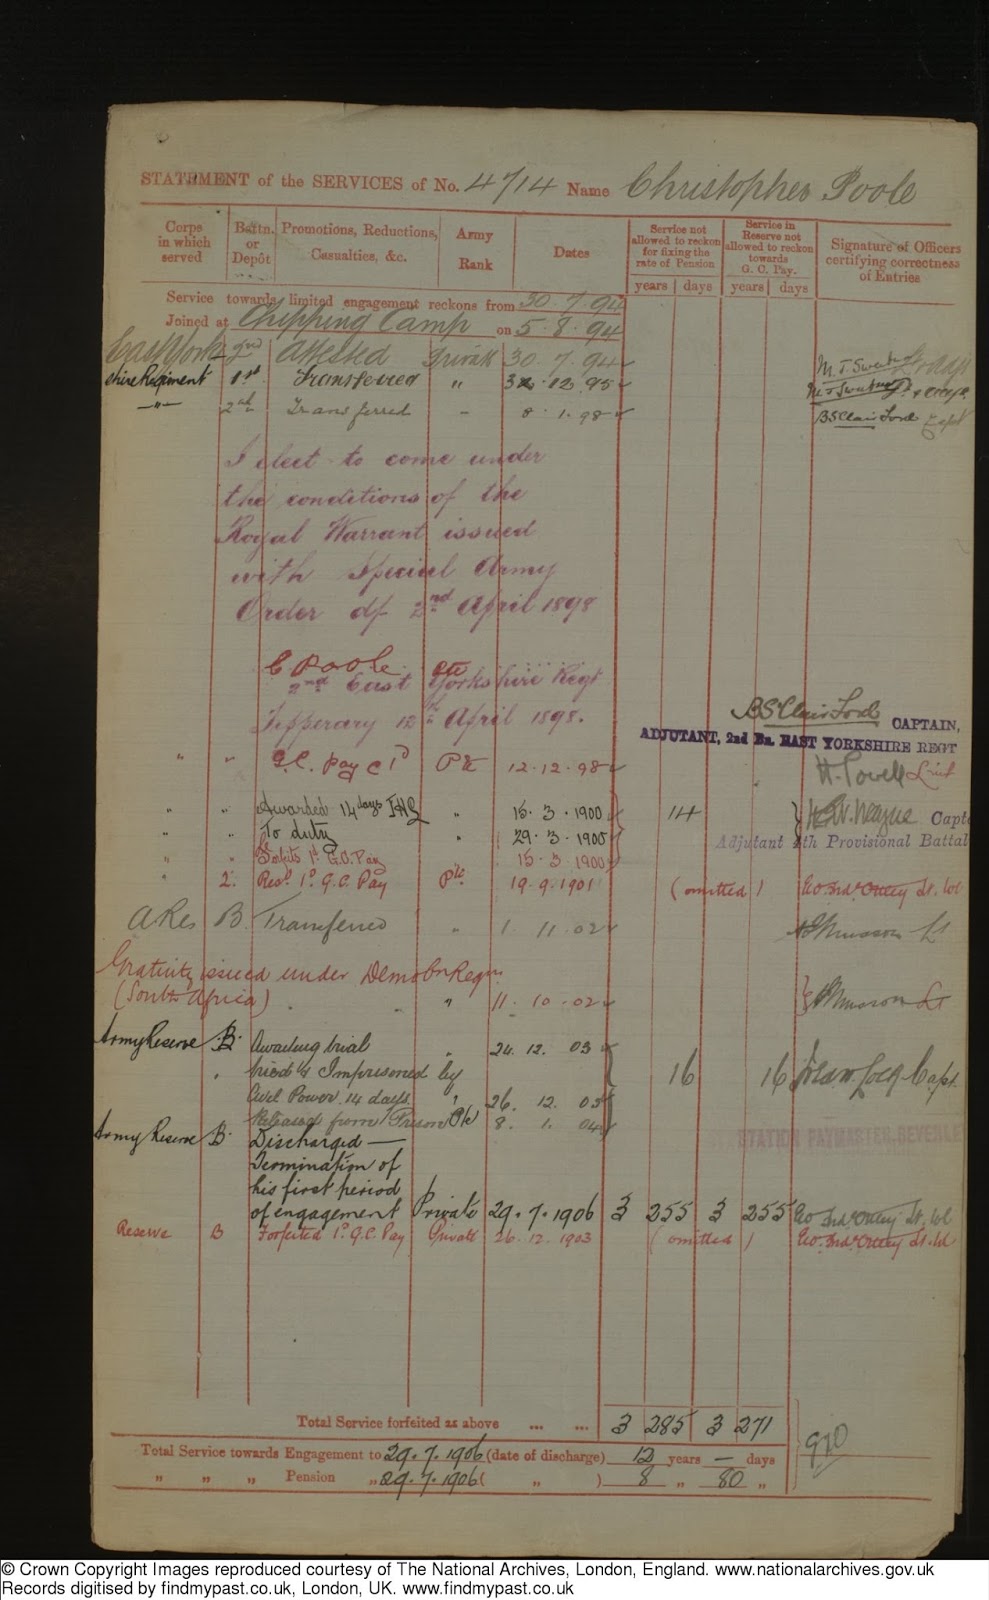 STATEMENT of the SERVICES of No. 4714 Name Christopher Poole
Corps in which served
Battn. or Depôt
Promotions, Reductions, Casualties, &c.
Army Rank
Dates
Service not allowed to reckon for fixing the rate of Pension
years days
Service in Reserve not allowed to reckon towards G. C. Pay.
years days
Signature of Officers certifying correctness of Entries
Service towards limited engagement reckons from 30.7.94
Joined at Chipping Camp on 5.8.94
East York- 2nd Attested Private 30.7.94
shire Regiment 1st Transferred " 12.95
-"- 2nd Transferred - 8.1.98 BSClair Ford Capt
I elect to come under
the conditions of the
Royal Warrant issued
with Special Army
Order of 2nd April 1898
C Poole Pte
2nd East Yorkshire Regt
Tipperary 12th April 1898.
BSClair Ford CAPTAIN,
ADJUTANT, 2nd Bn. EAST YORKSHIRE REGT
" " G.C. Pay @ 1d Pte 12.12.98 H. Powell Lieut
" " Awarded 14 days IHL " 15.3.1900 14 Capt
" " To duty " 29.3.1900 Adjutant 4th Provisional Battal
" " Forfeits 1d G.C. Pay 15.3.1900
" 2. Resd 1d G.C. Pay Pte 19.9.1901 (omitted) Lt. Col
A Res B Transferred " 1.11.02 Musson Lt
Gratuity issued under Demobn Regns.
(South Africa) " " 11.10.02 Musson Lt
Army Reserve B. Awaiting trial " 24.12.03
" tried & Imprisoned by 16 16 Capt.
Civil Power 14 days " 26.12.03
Released from Prison Pte 8.1.04
STATION PAYMASTER, BEVERLEY
Army Reserve B. Discharged —
Termination of
his first period
of engagement Private 29.7.1906 3 255 3 255 Lt. Col
Reserve B Forfeited 1d G.C. Pay Private 26.12.1903 (omitted) Lt. Col
Total Service forfeited as above ... ... 3 285 3 271
Total Service towards Engagement to 29.7.1906 (date of discharge) 12 years — days
" " " Pension " 29.7.1906 ( " ) 8 " 80 "
© Crown Copyright Images reproduced courtesy of The National Archives, London, England. www.nationalarchives.gov.uk
Records digitised by findmypast.co.uk, London, UK. www.findmypast.co.uk